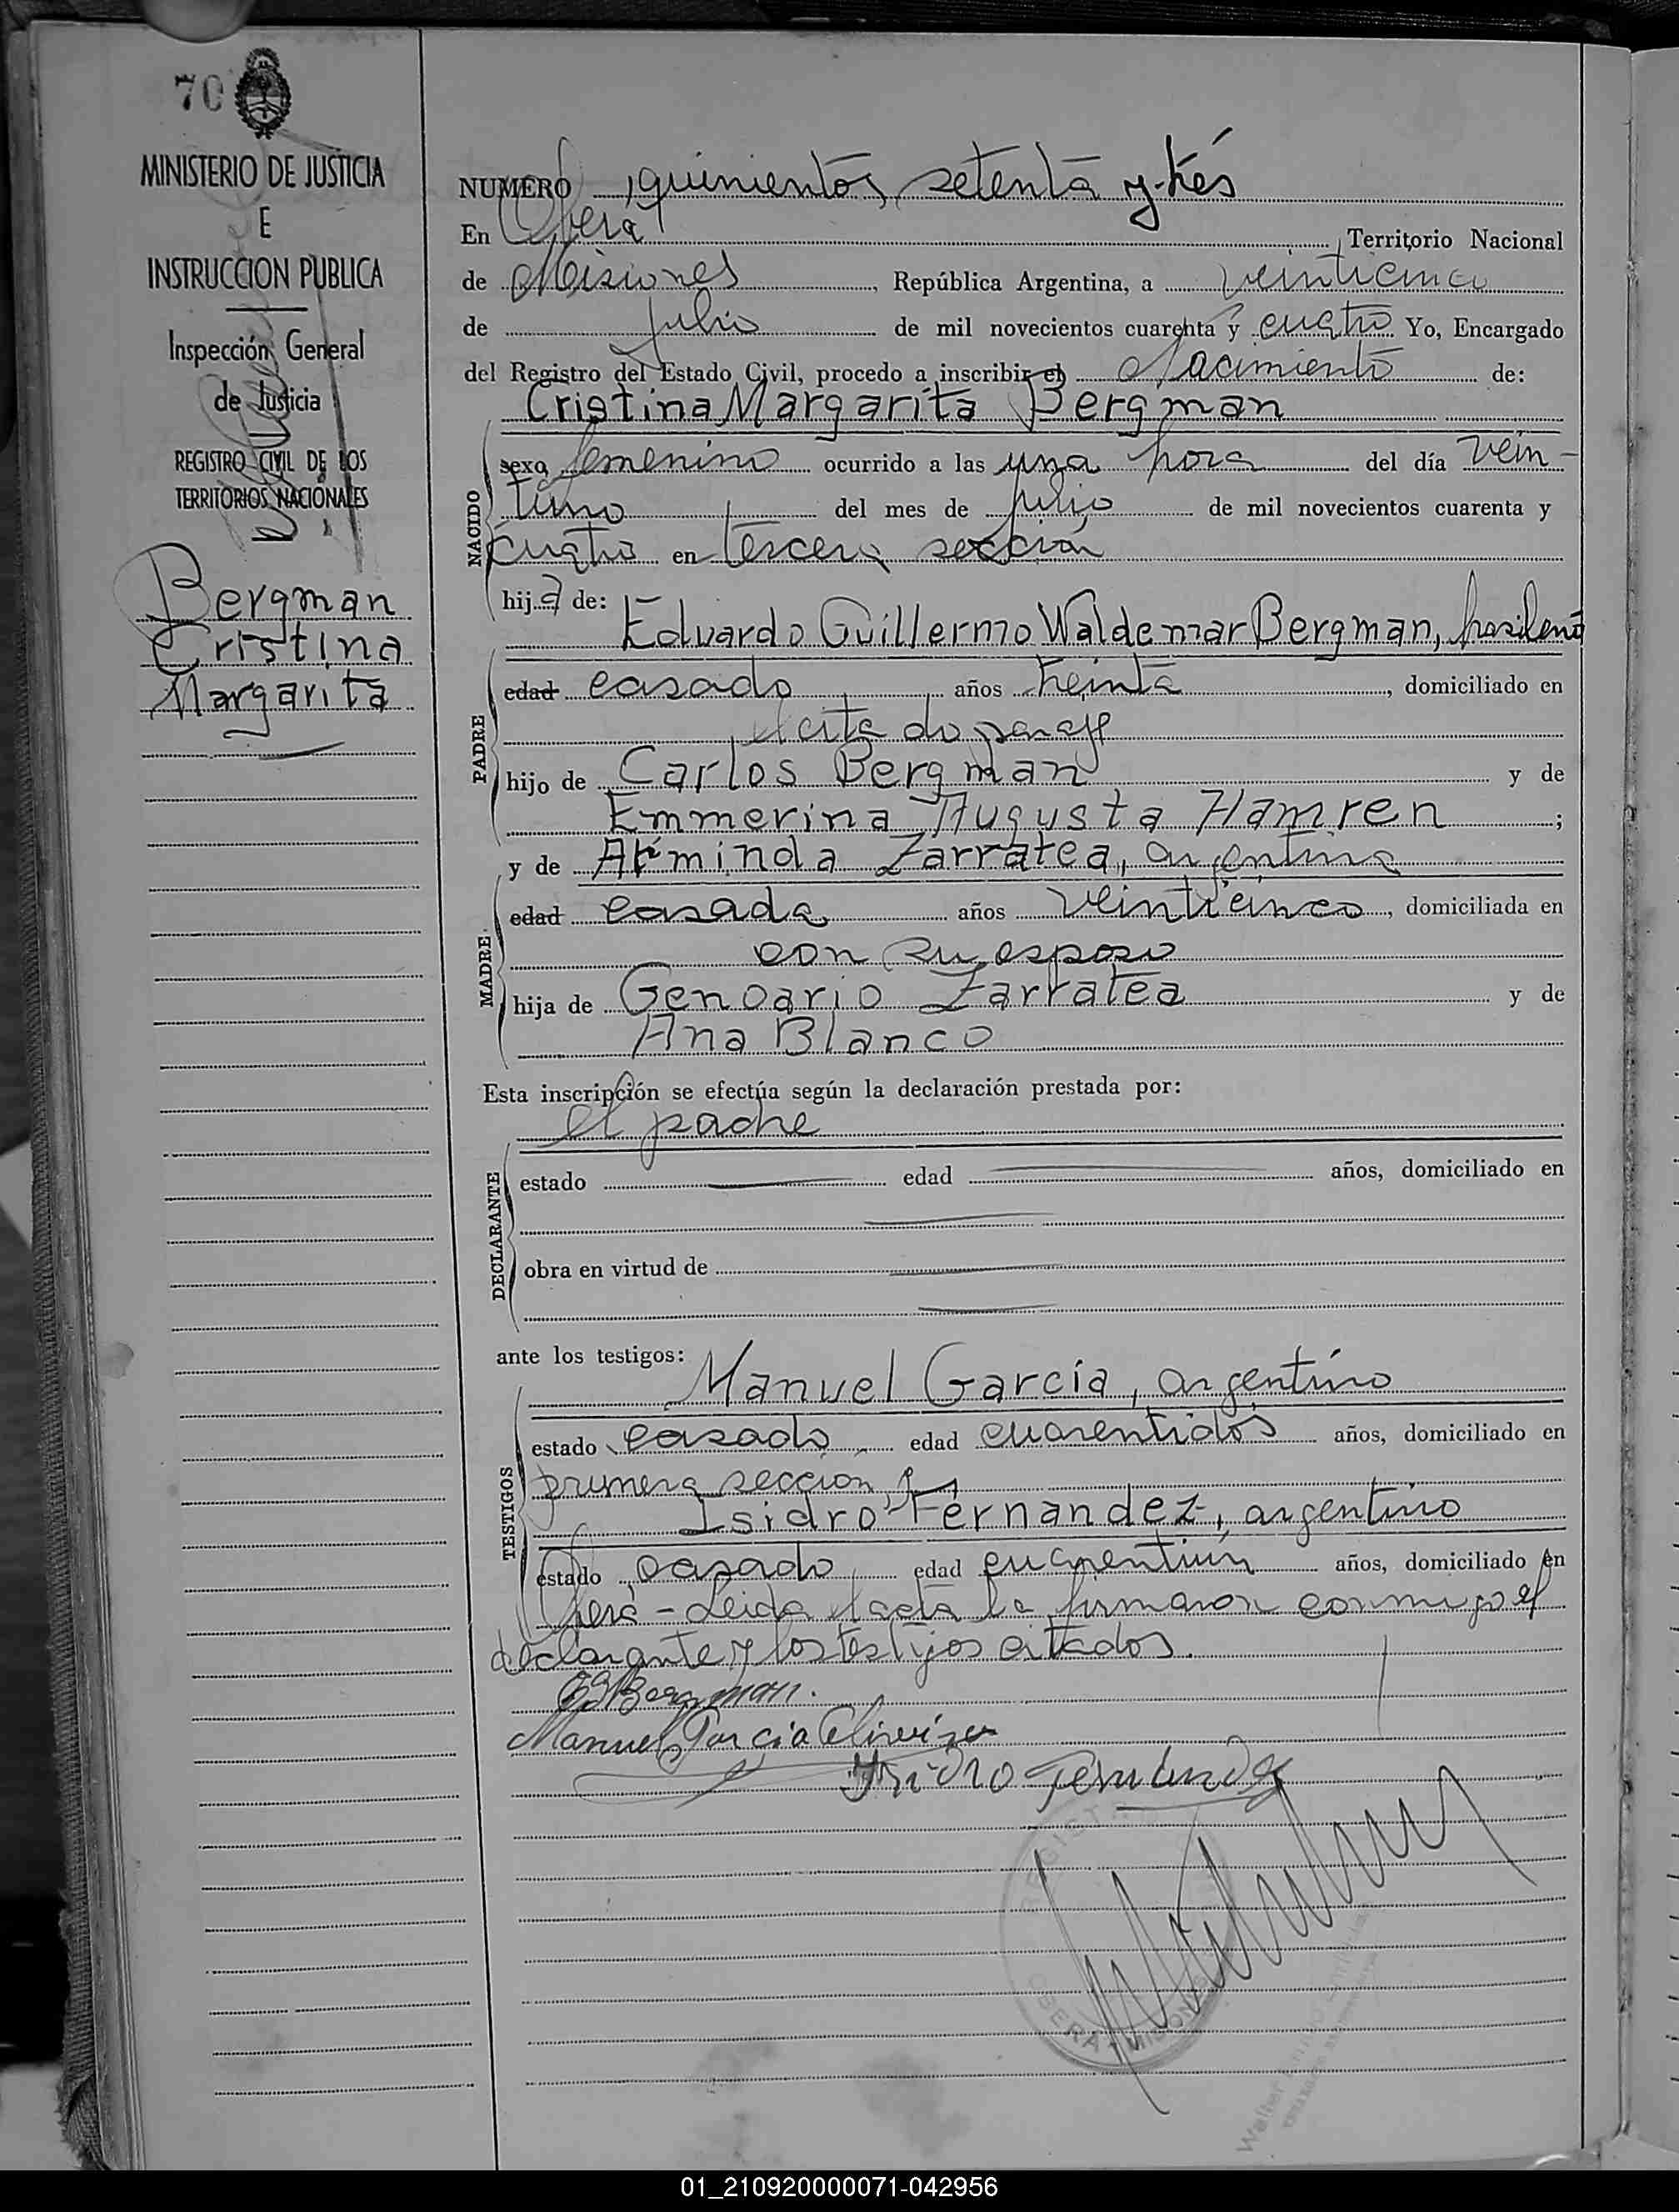 70
MINISTERIO DE JUSTICIA
E
INSTRUCCION PUBLICA
Inspección General
de Justicia
REGISTRO CIVIL DE LOS
TERRITORIOS NACIONALES
Bergman
Cristina
Margarita
NUMERO quinientos setenta y trés
En Oberá Territorio Nacional
de Misiones, República Argentina, a veinticinco
de julio de mil novecientos cuarenta y cuatro Yo, Encargado
del Registro del Estado Civil, procedo a inscribir el Nacimiento de:
Cristina Margarita Bergman
NACIDO
sexo femenino ocurrido a las una hora del día vein-
tiuno del mes de julio de mil novecientos cuarenta y
cuatro en tercera sección
hija de:
Eduardo Guillermo Waldemar Bergman, brasileño
PADRE
edad casado años treinta, domiciliado en
el citado paraje
hijo de Carlos Bergman y de
Emmerina Augusta Hamren ;
y de Arminda Zarratea, argentina
MADRE
edad casada años veinticinco, domiciliada en
con su esposo
hija de Genoario Zarratea y de
Ana Blanco
Esta inscripción se efectúa según la declaración prestada por:
el padre
DECLARANTE
estado edad años, domiciliado en
obra en virtud de
ante los testigos:
Manuel García, argentino
TESTIGOS
estado casado edad cuarentidós años, domiciliado en
primera sección y
Isidro Fernandez, argentino
estado casado edad cuarentiun años, domiciliado en
Oberá - Leida el acta la firmaron conmigo el
declarante y los testigos citados.
Bergman.
Manuel Garcia
Isidro Fernandez
REGISTR
OBERA - MISIONES
01_210920000071-042956